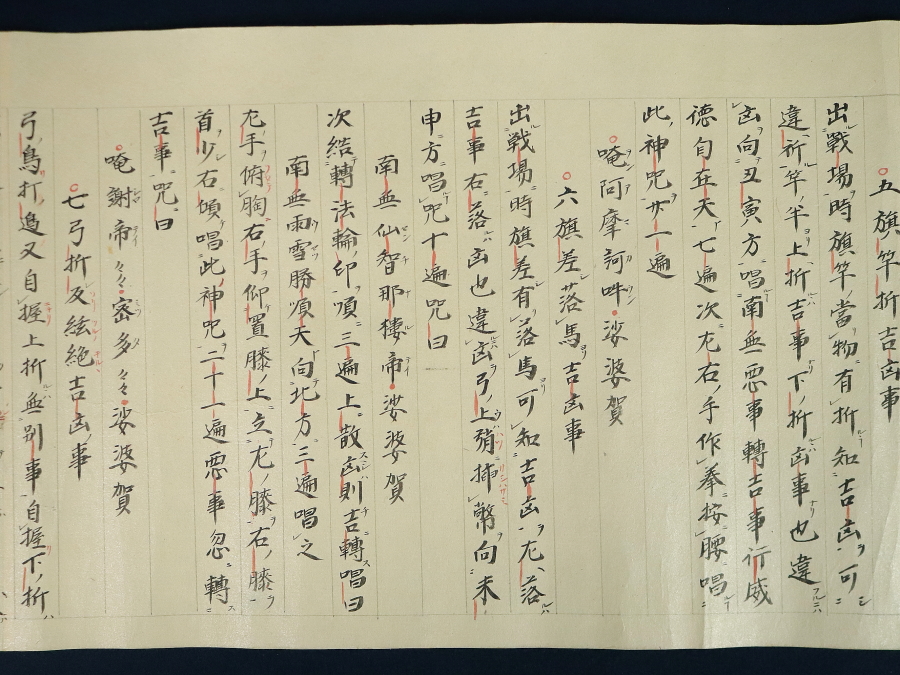 五旗竿折吉凶事
出戰場時旗竿當物有折知吉凶可
違祈竿半上折吉事下折凶事也違
凶向丑寅方唱南無悪事轉吉事行威
德自在天七遍次左右手作拳按腰唱
此神咒廿一遍
唵阿摩訶吽娑婆賀
六旗差落馬吉凶事
出戰場時旗差有落馬可知吉凶左落
吉事右落凶也違凶弓上弰挿幣向未
申方唱咒十遍咒曰
南無仙智那樓帝娑婆賀
次結轉法輪印頂三遍上散凶則吉轉唱曰
南無雨雪勝順天向北方三遍唱之
左手俯胸右手仰置膝上立左膝右膝
首少右傾唱此神咒二十一遍悪事忽轉
吉事咒曰
唵謝帝々々密多々々娑婆賀
七弓折及絃絶吉凶事
弓鳥打邉又自握上折無别事自握下折